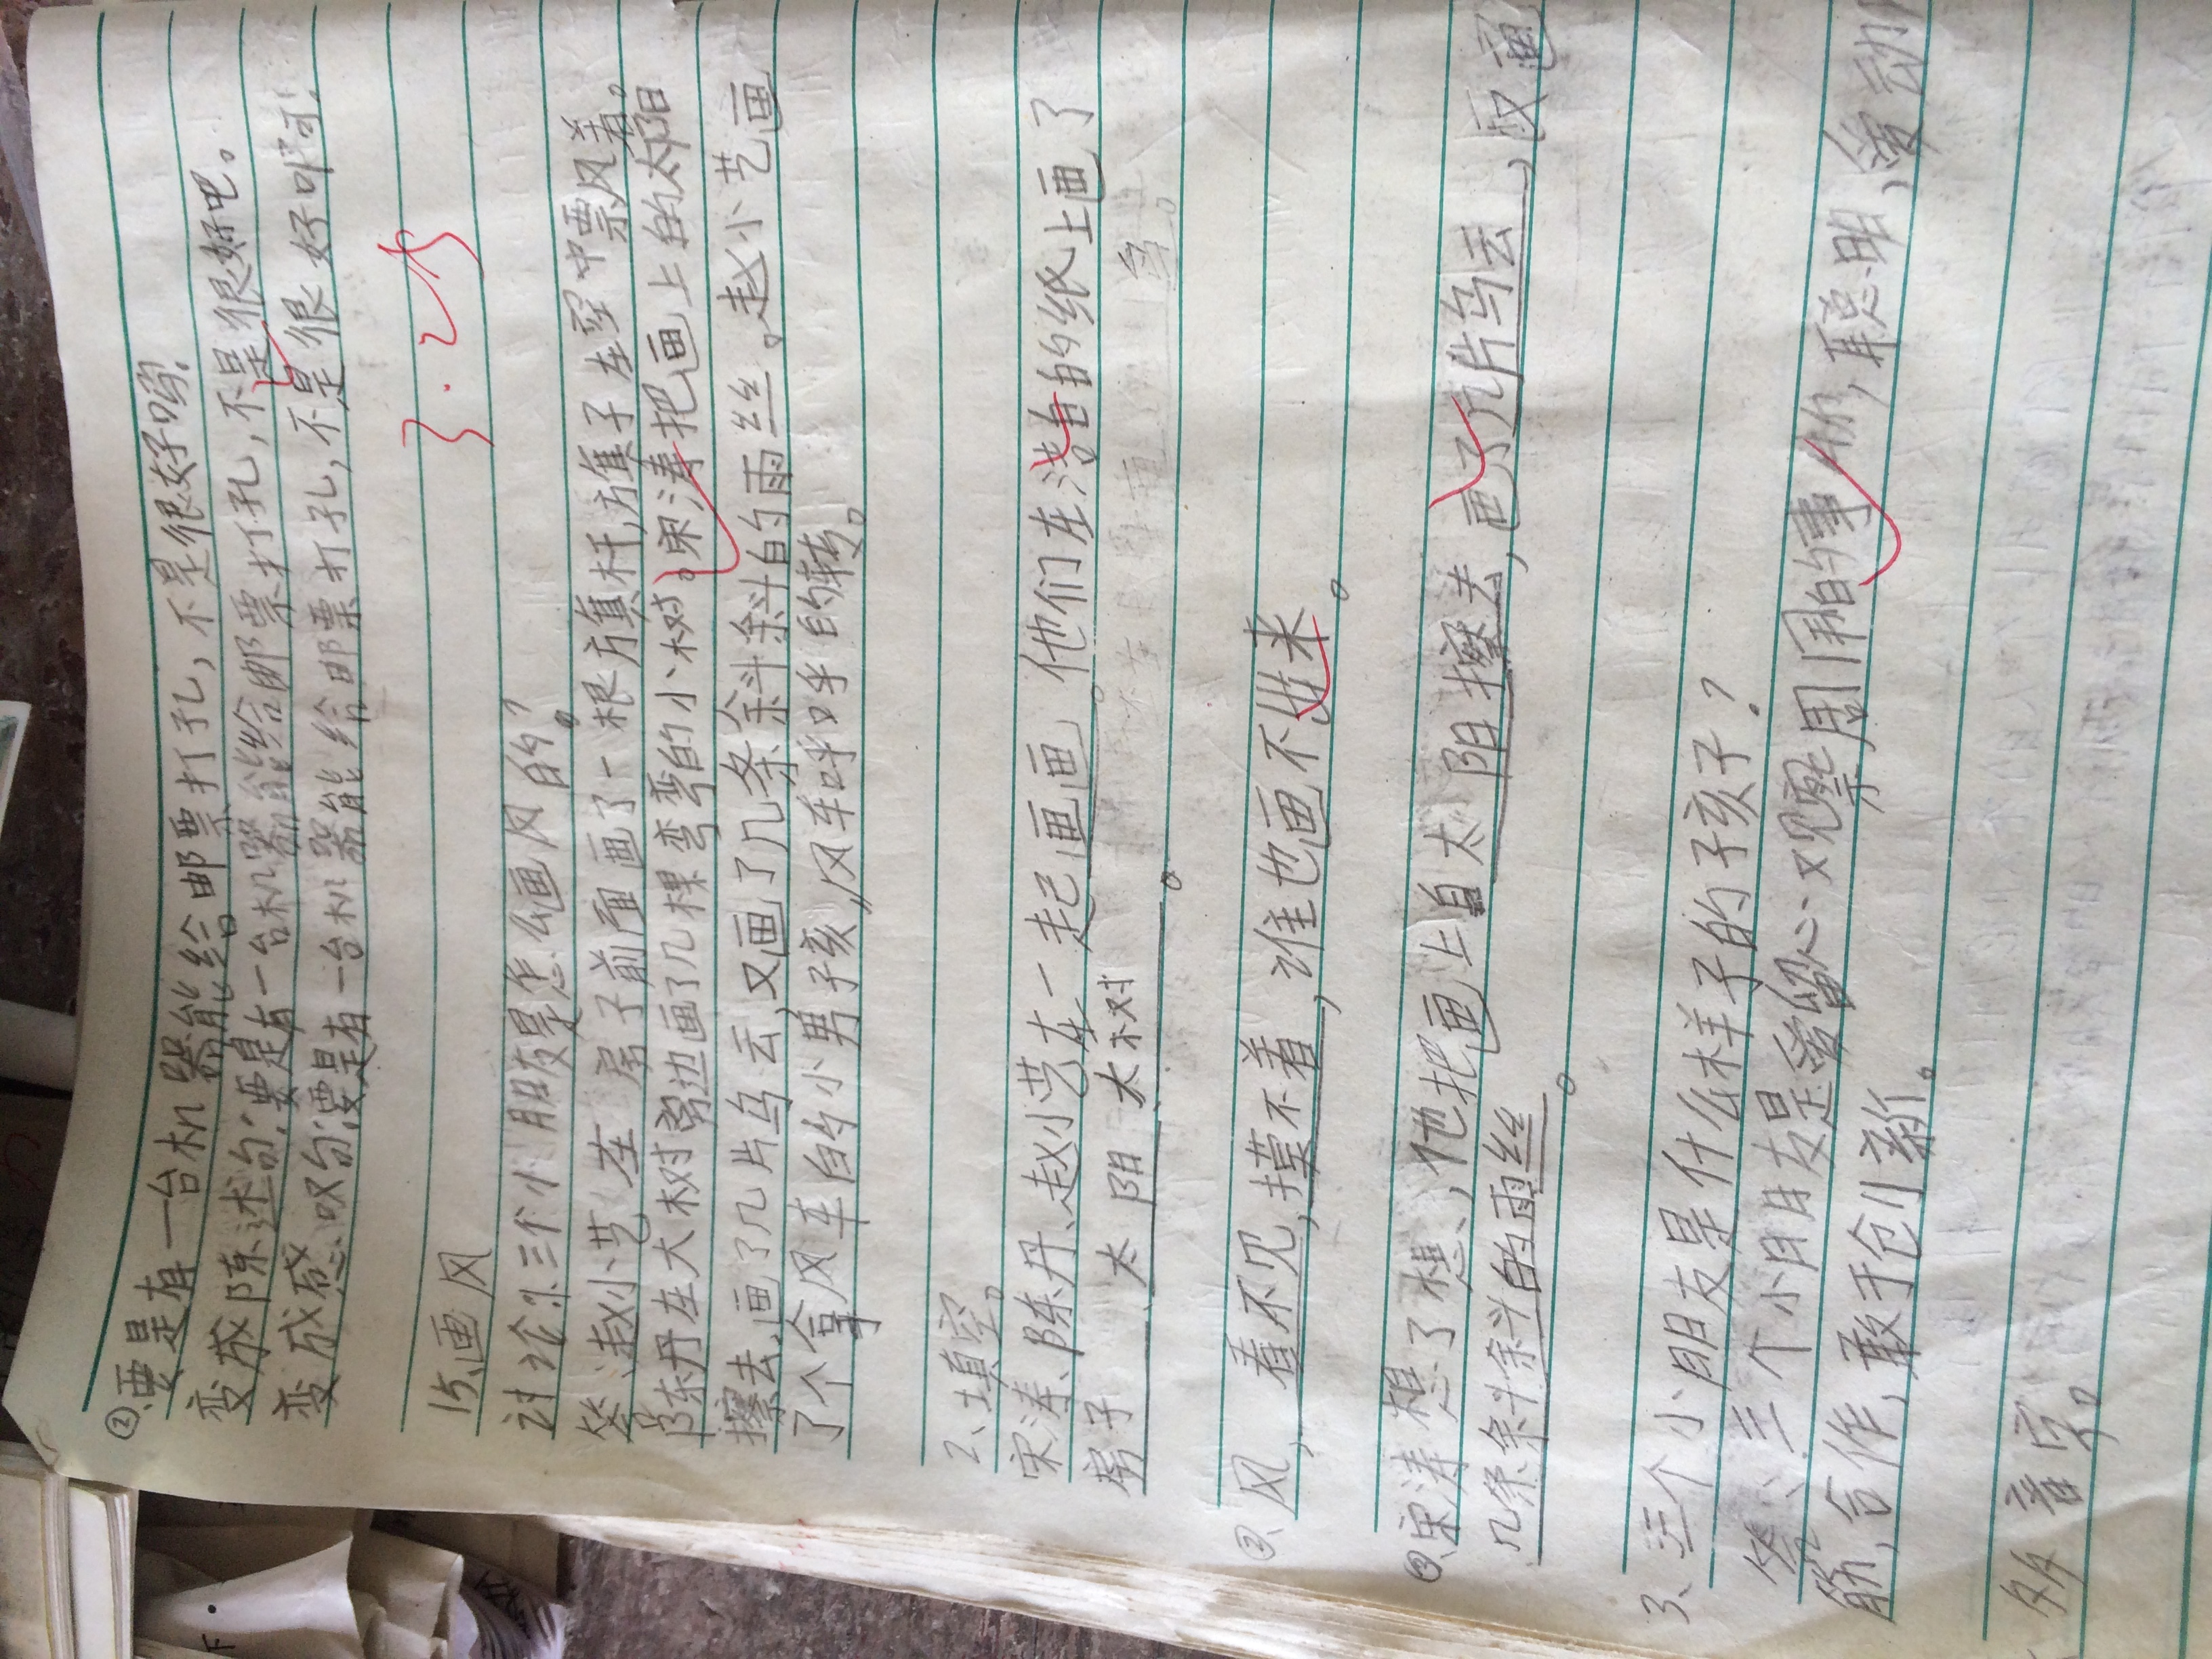 ②、要是有一台机器能给邮票打孔，不是很好吗？
变成陈述句：要是有一台机器能给邮票打孔，不是很好吧。
变成感叹句：要是有一台机器能给邮票打孔，不是很好啊！
3.25
15、画风
讨论：三个小朋友是怎么画风的？
答：赵小艺在房子前面画了一根旗杆，旗子在空中飘着。
陈丹在大树旁边画了几棵弯弯的小树。宋涛把画上的太阳
擦去，画了几片乌云，又画了几条斜斜的雨丝。赵小艺画
了个拿风车的小男孩，风车呼呼的转。
2、填空。
宋涛、陈丹、赵小艺在一起画画。他们在洁白的纸上画了
房子、太阳、大树。
②、风，看不见，摸不着，谁也画不出来。
③、宋涛想了想，他把画上的太阳擦去，画了几片乌云，又画
几条斜斜的雨丝。
3、三个小朋友是什么样子的孩子？
答：三个小朋友是爱留心观察周围的事物，聪明、爱动
脑，合作，敢于创新。
多音字。